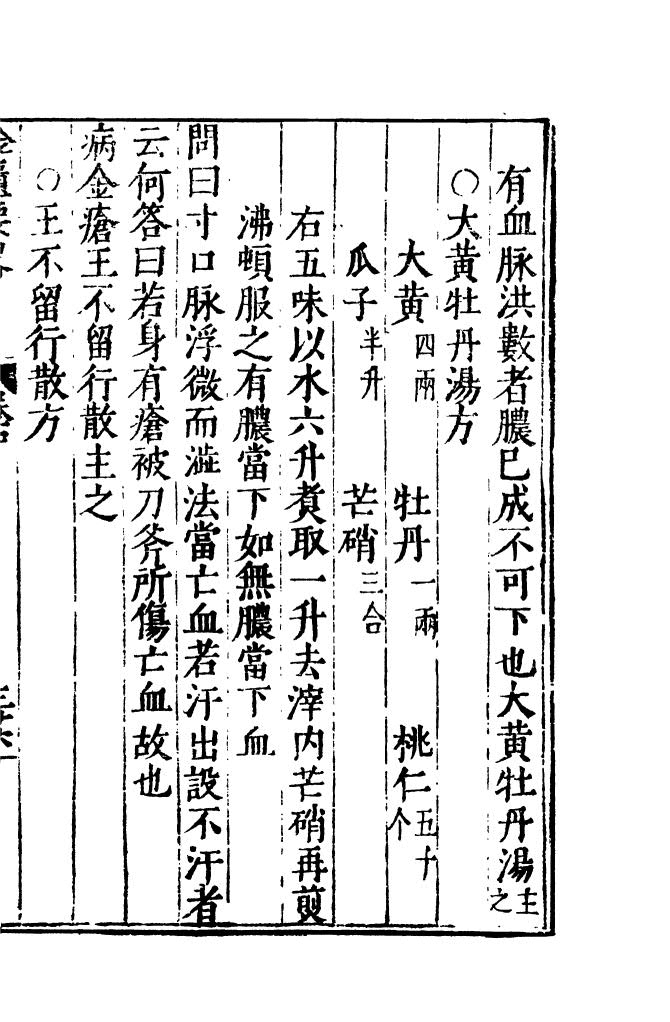 有血脉洪數者膿已成不可下也大黄牡丹湯主之
○大黄牡丹湯方
大黄四兩 牡丹一兩 桃仁五十个
瓜子半升 芒硝三合
右五味以水六升煑取一升去滓内芒硝再煎
沸頓服之有膿當下如無膿當下血
問曰寸口脉浮微而澁法當亡血若汗出設不汗者
云何答曰若身有瘡被刀斧所傷亡血故也
病金瘡王不留行散主之
○王不留行散方